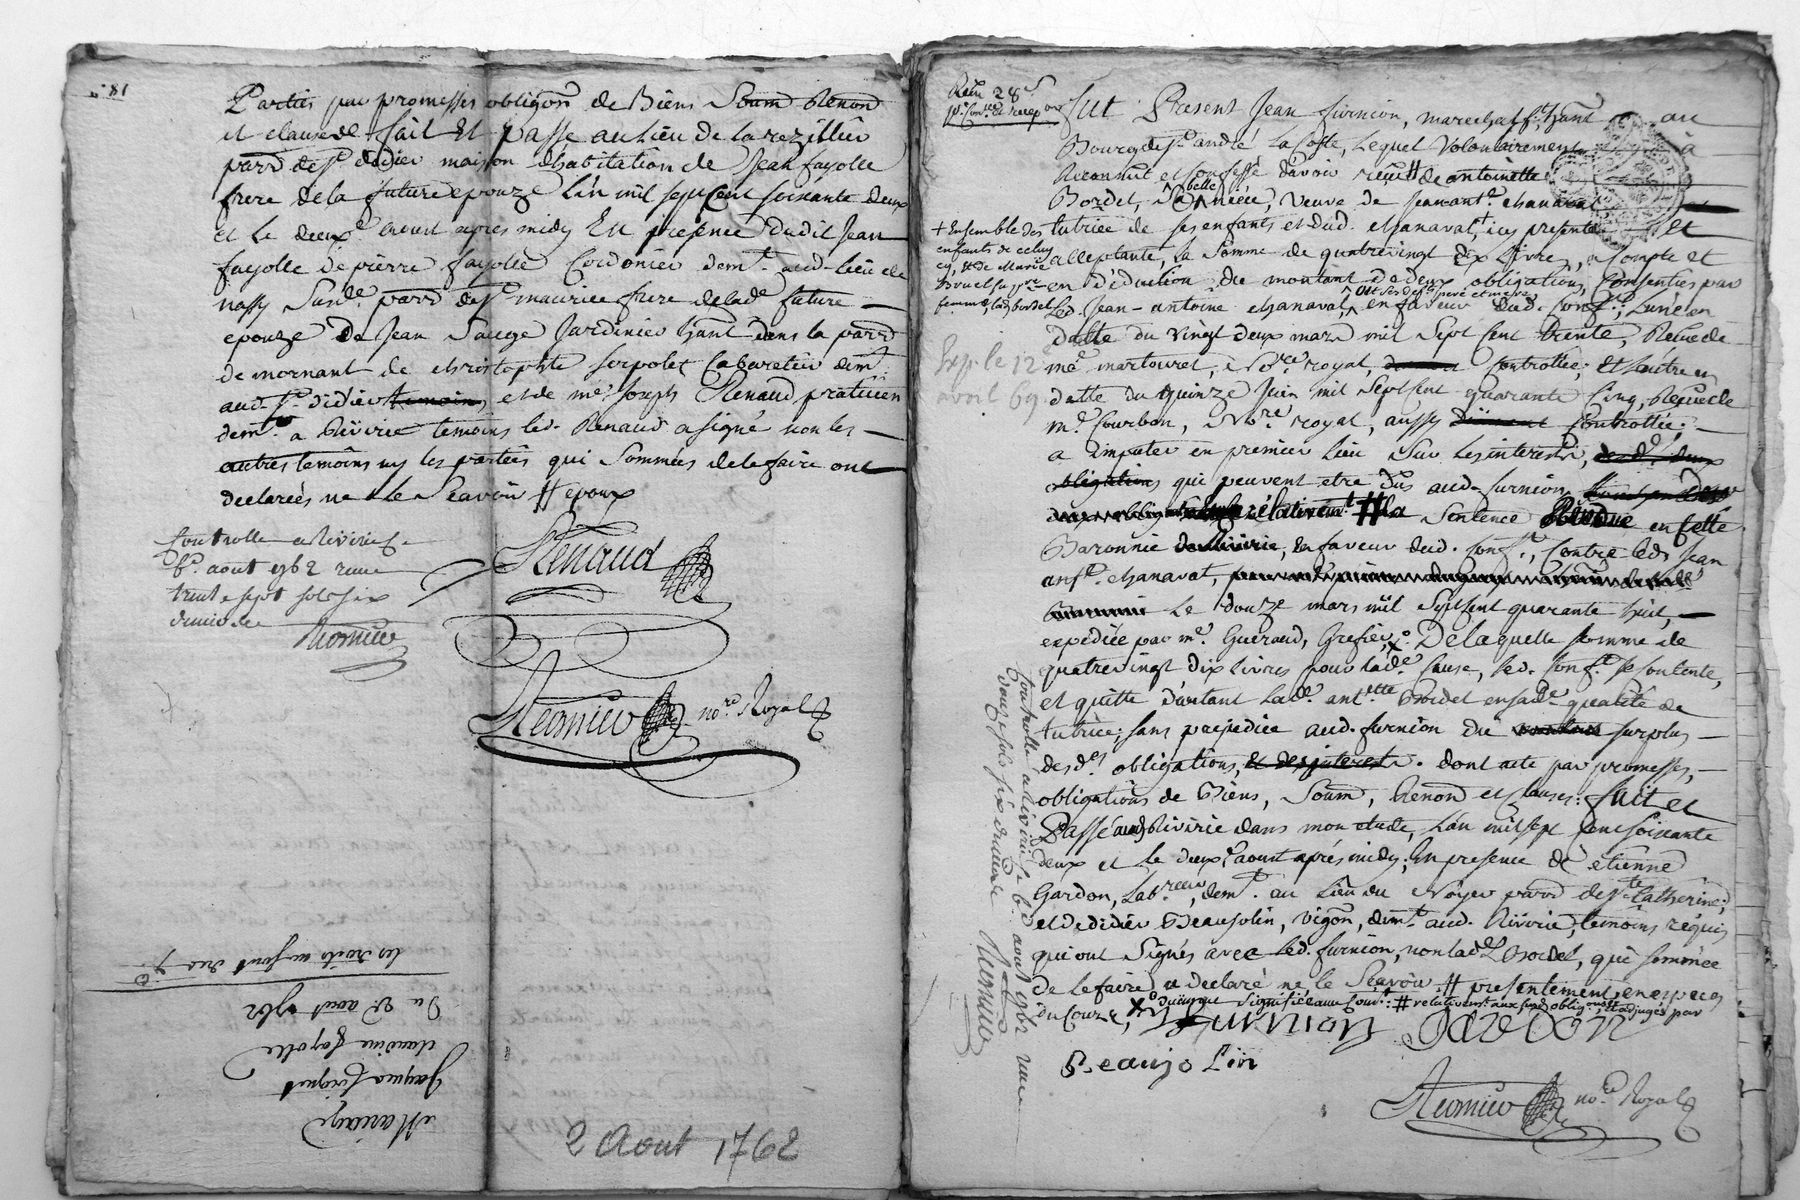 81
Parties par promesses obligõns de Biens Soum Renonõ
et clauses. fait Et Passé au lieu de la rezilliere
parrõ de St didier maison d'habitation de Jean fayolle
frere de la future epouze L'an mil sept cent soixante deux
et Le deuxe aoust après midy En présence dudit Jean
fayolle de pierre fayolle Cordonier demt. aud. lieu de
nassy Susde. parrõ de St maurice frere delade future
epouze de Jean Sauge Jardinier hant dans la parrõ
de mornant de christophle Cabaretier demt.
aud. St. didier temoins, et de me. Joseph Renaud praticien
demt. a Riverie temoins led. Renaud a signé non les
autres temoins ny les parties qui Sommées de le faire ont
declarées ne le Scavoir # epoux
Controllé a Riverie le
6e. aout 1762 receu
trente sept sols six
deniers
Renaud
no.re Royal
Mariage
Jaques
claudine fayolle
Du 2e aout 1762
les droits en sont dus
2 Aout 1762
Reçu 28s
pr. Con.lle et recep.on
fut Présent Jean furnion, marechal ft. hant au
Bourg de St. andré La Coste, Lequel Volontairement a
Reconnut et Confessé d'avoir reçu # de antoinette
Bordet, Sa belle niéce, Veuve de Jean ant.e chanavat
tutrice de ses enfants et dud. chanavat,+ icy presente Et
+ Ensemble des
enfants de celuy
cy, & de Marie
femme, lad. bordet
acceptante, La Somme de quatrevingt dix Livres, a Compte et
en déduction du montant de deux obligations Consenties par
Led. Jean-antoine chanavat, en faveur dud. Confst., L'une en
datte du Vingt deux mars mil Sept Cent trente, Recue de
me martouret, No.re royal, Controllée; Et L'autre en
Exp. le 12
avril 69.
datte du quinze Juin mil Sept Cent quarante Cinq, Reçue de
me. Courbon, No.re royal, aussy duëment Controllée;
a imputer en premier lieu Sur les interests, des de. deux
obligations qui peuvent etre dûs aud. furnion,
relativemt. # la Sentence Rendue en cette
Baronnie de Riverie, en faveur dud. Confst., Contre led. Jean
ant.e chanavat,
Le douze mars mil Septcent quarante huit,
expediée par me. Guéraud, Grefier,X De laquelle Somme de
quatrevingt dix Livres pour lade. Cause, led. Confst. Se Contente,
et quitte d'autant Lade. ant.tte Bordet en sade. qualité de
tutrice; Sans prejudice aud. furnion du surplus
desde. obligations, et des interests. dont acte par promesses,
obligations de Biens, Soum, Renonõ et clauses: fait et
Passé aud. Riverie dans mon etude, L'an mil sept Cent Soixante
deux et le deuxe. aoust après midy; En presence de etienne
Gardon, Lab.reur, demt. au Lieu du Noyer parrõ de Ste. Catherine;
et de didier Beaujolin, vigõn, demt. aud. Riverie, temoins requis
qui ont Signés avec led. furnion, non lade. Bordet, qui sommée
de le faire a declaré ne le Sçavoir # presentement, en especes
du Cours, X duëment signifiée aux Con.st: # relativemt. aux susd. obligons. et adjugés par
furnion Gardon
Beaujolin
no.re Royal
Controllé a Riverie le 6e. aout 1762 receu
douze sols six deniers